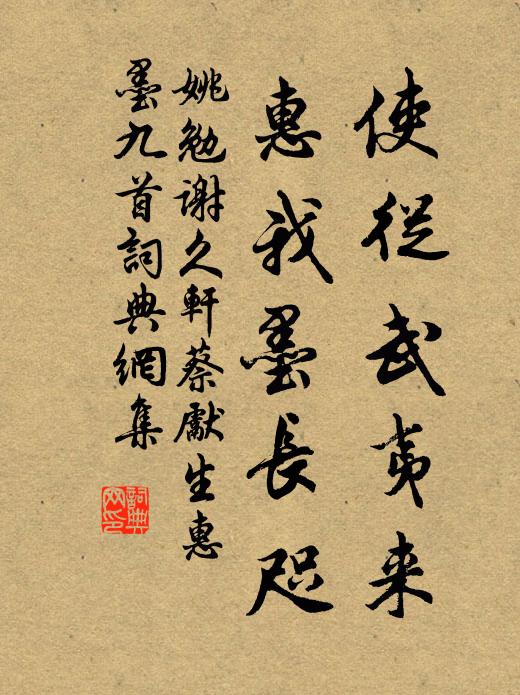 使從武夷来
惠我墨長咫
姚勉謝久軒蔡獻生惠
墨九首詞典網集
詞典
网印